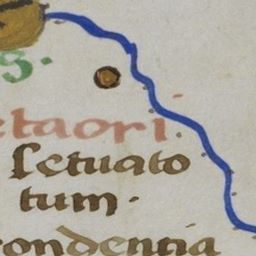 s.
etaori.
setuato
tum.
ondentia